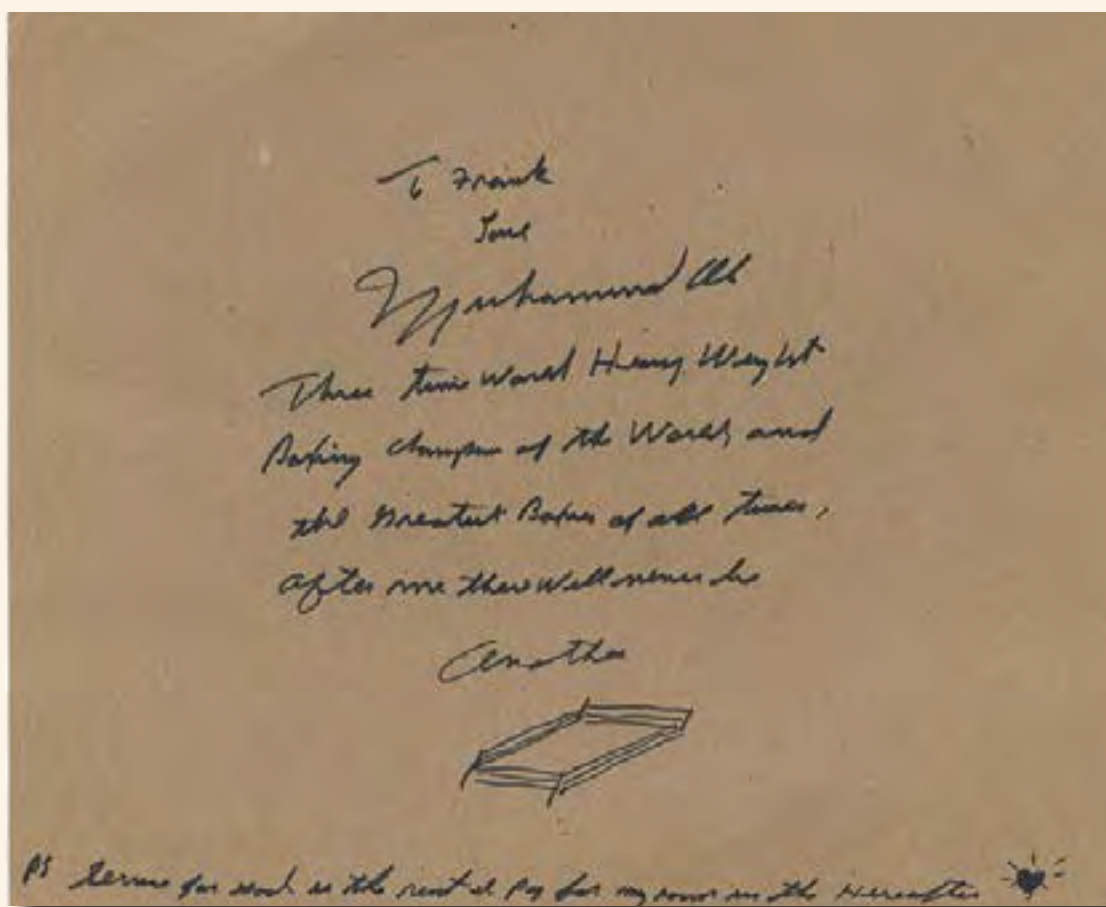 To Frank
Love
Muhammad Ali
Three time World Heavy Weight
Boxing Champion of the World, and
the Greatest Boxer of all times,
After me there Will never be
Another
PS Service for God is the rent I Pay for my room in the Hereafter